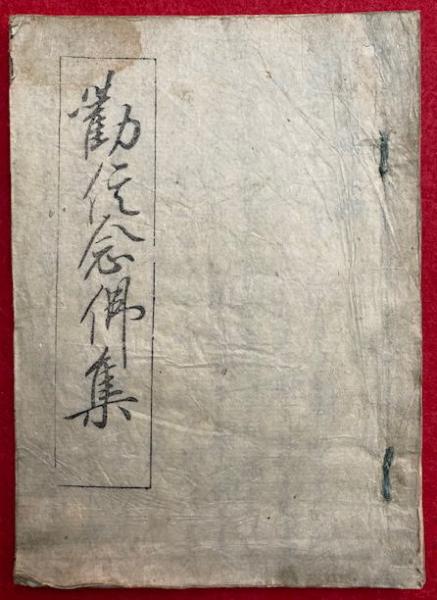 勸信念佛集